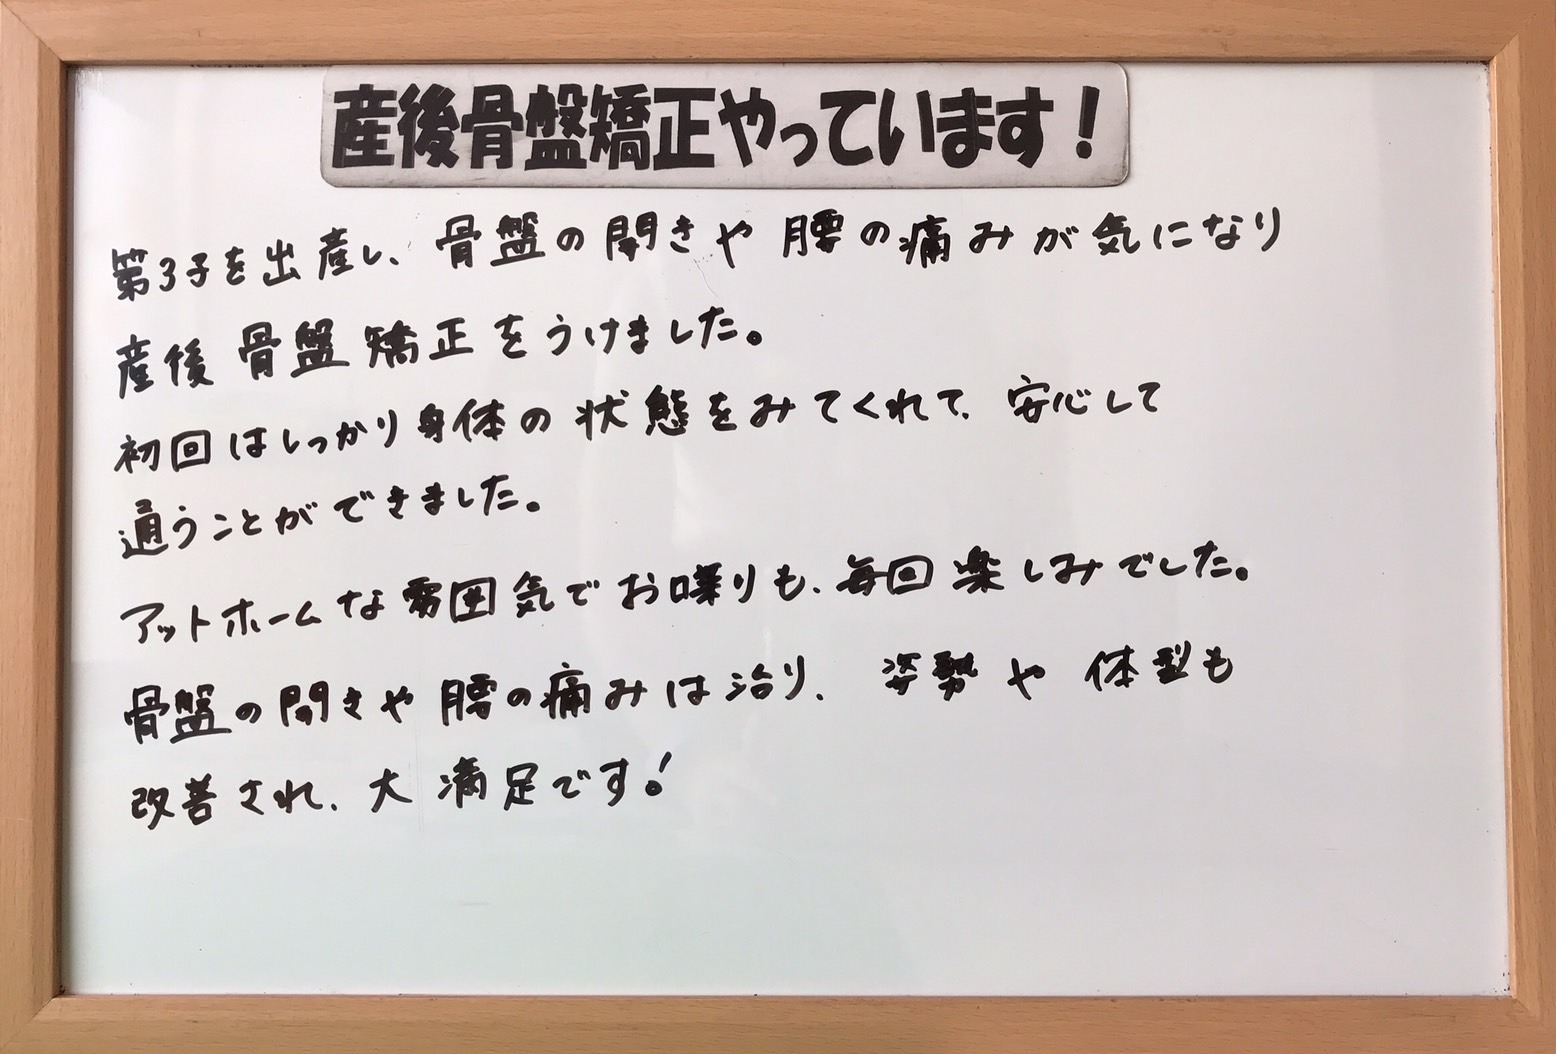 産後骨盤矯正やっています！
第3子を出産し、骨盤の開きや腰の痛みが気になり
産後骨盤矯正をうけました。
初回はしっかり身体の状態をみてくれて、安心して
通うことができました。
アットホームな雰囲気でお喋りも、毎回楽しみでした。
骨盤の開きや腰の痛みは治り、姿勢や体型も
改善され、大満足です！